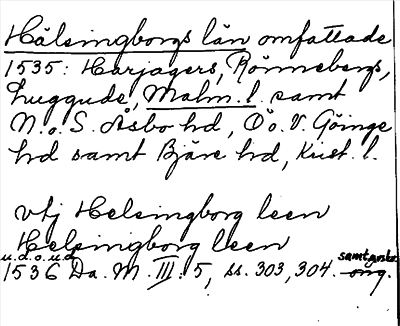 Hälsingborgs län omfattade
1535: Harjagers, Rönnebergs,
Luggude, Malm. l. samt
N. o. S. Åsbo hd, Ö o. V. Göinge
hd samt Bjäre hd, Krist. l.
vtj Helsingborg leen
Helsingborg leen
u.d.o.u.d.
1536 Da. M. III: 5, ss. 303, 304. orig.